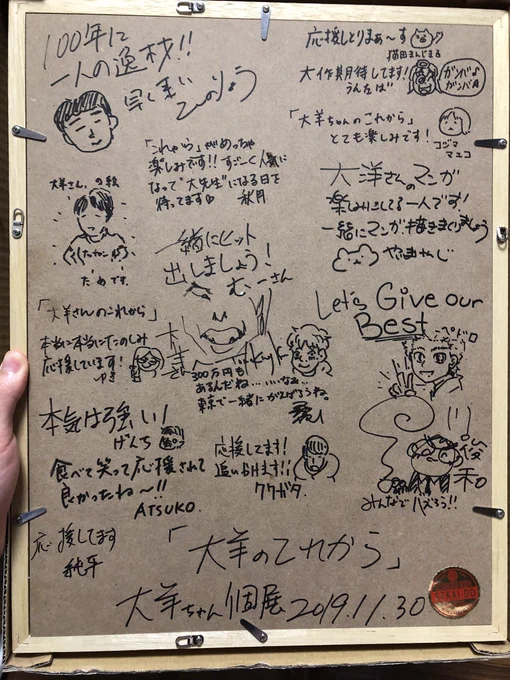 100年に
一人の逸材!!
応援しとりまぁ〜す
猫田まんじまる
大作期待してます!
うんたは
ガンバよ
ガンバ
「大羊ちゃんのこれから」
とても楽しみです!
コジマ
マユコ
「これから」がめっちゃ
楽しみです!!すごーく人気に
なって"大先生"になる日を
待ってます♡
秋月
大羊さん。の絵
ためです。
大洋さんのマンガ
楽しみにしてる一人です!
一緒にマンガ描きまくりましょう
やまもとし
一緒にヒット
出しましょう!
むーさん
Let's Give our
Best
ペドロ
「大羊さんのこれから」
本当に本当にたのしみ
応援しています!
ゆき
300万円も
あるんだね…いいなぁ…
東京で一緒にがんばろうね。
本気は強い!
げんち
食べて笑って応援されて
良かったね〜!!
ATSUKO.
応援してます!
追いかけます!!
クワガタ.
みんなでハズろう!!
応援してます
純平
「大羊のこれから」
大羊ちゃん個展 2019.11.30
SEKAIDO